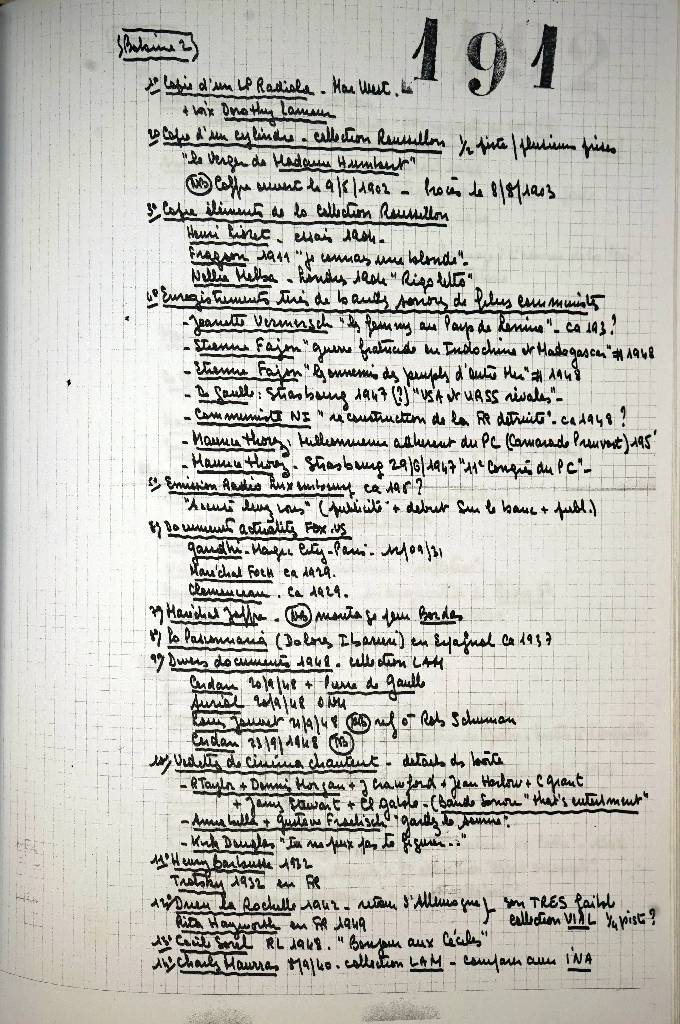 {Bobine 2} 191
1º Copie d'un LP Radiola - Mae West.
+ voix Dorothy Lamour
2º Copie d'un cylindre - collection Roussillon 1/2 piste / plusieurs prises
"le Verger de Madame Humbert"
(NB) Coffre ouvert le 9/5/1902 - Procès le 8/8/1903
3º Copie éléments de la collection Roussillon
Henri Lioret - essais 1904 -
Fragson 1911 "je connais une blonde" -
Nellie Melba - Londres 1904 "Rigoletto"
4º Enregistrements tirés de bandes sonores de films communistes
- Jeanette Vermersch "les femmes au Pays de Lénine" - ca 193?
- Etienne Fajon "guerre fratricide en Indochine et Madagascar" # 1948
- Etienne Fajon "les ennemis des peuples d'outre Mer" # 1948
- De Gaulle: Strasbourg 1947 (?) "USA et URSS rivales" -
- Communiste NI "reconstruction de la FR détruite" - ca 1948?
- Maurice Thorez: adhérent du PC (Camarade Pruvost) 195
- Maurice Thorez - Strasbourg 29/6/1947 "11e Congrès du PC" -
5º Emission Radio Luxembourg ca 195?
"Accusé levez vous" (publicité + début Sur le banc + publ.)
Documents actualités FOX-US
Gandhi - Magic City - Paris - 12/09/31
Maréchal Foch ca 1929.
Clemenceau. ca 1929.
7º Maréchal Joffre - (NB) montage pour Bordas
8º La Passionaria (Dolores Ibaruri) en Espagnol Ca 1937
9º Divers documents 1948 - collection LAM
Cerdan 20/9/48 + Pierre de Gaulle
Auriol 20/9/48 ONU
Louis Jouvet 21/9/48 (NB) Rob Schuman
Cerdan 23/9/1948 (NB)
10º Vedettes de cinéma chantent - détails ds boîte
- R Taylor + Dennis Morgan + J Crawford + Jean Harlow + C grant
+ Jamy Stewart + Cl gable - (Bande Sonore "that's entertment"
- Annabella + Gustave Froelisch "gardez le sourire".
- Kirk Douglas "Tu ne peux pas te figurer..."
11º Henry Barbusse 1932
Trotsky 1932 en FR
12º Drieu la Rochelle 1942 - retour d'Allemagne } son TRES faible
Rita Hayworth en FR 1949 collection VIAL 1/4 piste?
13º Cécil Sorel RL 1948. "Bonjour aux Céciles"
14º Charles Maurras 8/9/40 - collection LAM - comparer avec INA